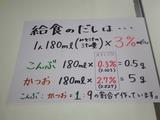 給食のだしは…
1人180ml × 3%
こんぶ 180ml × 0.3% = 0.5g
かつお 180ml × 2.7% = 5g
こんぶ:かつお = 1:9の割合で作っています。